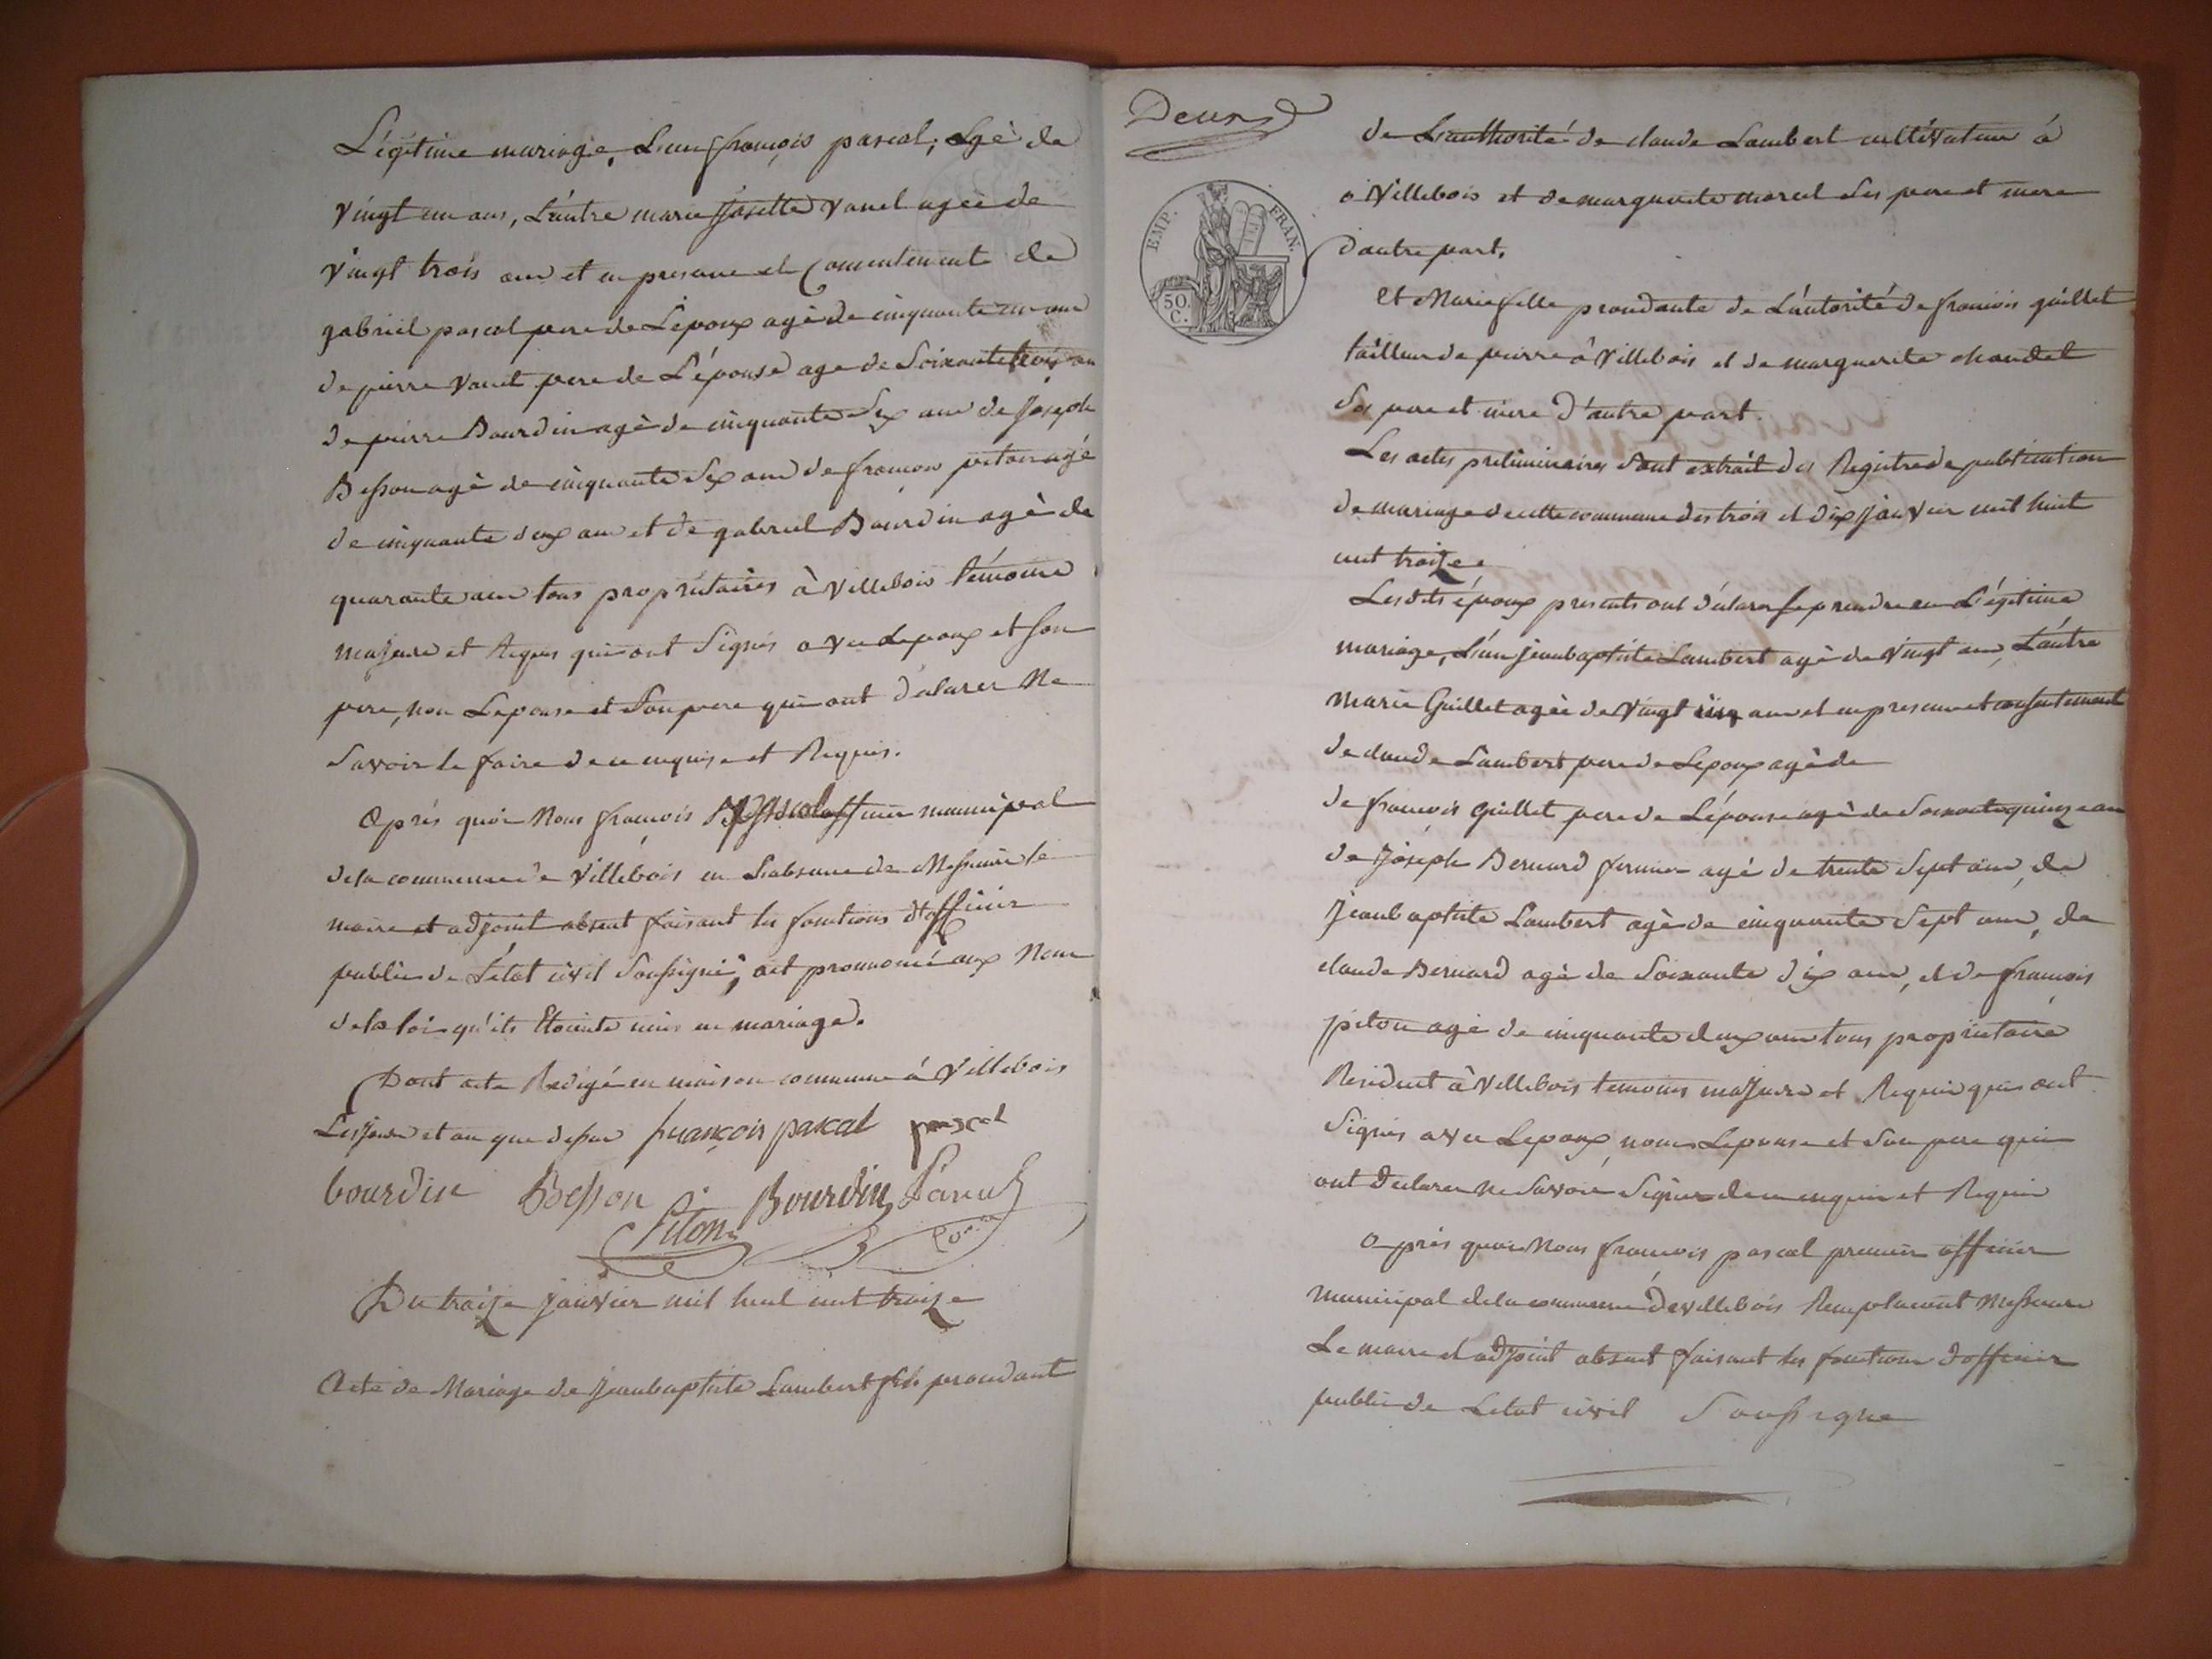 Légitime mariage, L'un françois pascal, Agé de
Vingt un ans, L'autre marie Josette Vanel agée de
Vingt trois ans et en presance et consentement de
gabriel pascal pere de L'epoux agé de cinquante un ans
de pierre Vanel pere de L'épouse age de Soixante trois an
de pierre Bourdin agé de cinquante Six ans de Joseph
Besson agé de cinquante Six ans de françois piton agé
de cinquante deux ans et de gabriel Bourdin agé de
quarante ans tous propriétaires à Villebois témoins
majeurs et Requis qui ont Signés avec Lepoux et Son
pere, non Lepouse et Son pere qui ont déclarer Ne
Savoir le faire de ce enquise et Requis.
Après quoi Nous françois Pascal officier municipal
de la commune de Villebois en L'absance de Messieurs le
maire et adjoint absent faisant les fonctions d'officier
public de L'état civil Soussigné, ait prononcé aux Nom
de la loi qu'ils Etointe unis en mariage.
Dont acte Redigé en maison commune à Villebois
Les Jour et an que dessus françois pascal pascal
bourdin Besson Bourdin
Piton
Du traize janvier mil huit cent traize
Acte de Mariage de Jean baptiste Lambert fils prandant
Deux
de L'authorité de claude Lambert cultivateur à
à Villebois et de marguerite marcel Ses pere et mere
d'autre part.
EMP. FRAN.
50 C.
Et Marie fille prandante de L'autorité de francois guillet
tailleur de pierre à Villebois et de marguerite chandel
Ses pere et mere d'autre part.
Les actes preliminaires Sont extrait des Registre de publication
de mariage de cette commune des trois et dix janvier mil huit
cent traize.
Lesdits époux presents ont déclarer Se prendre en Légitime
mariage, L'un jean baptiste Lambert agé de Vingt ans, L'autre
Marie Guillet agée de Vingt ans et en presence et consentement
de claude Lambert pere de Lepoux agé de
de francois Guillet pere de L'épouse agé de Soixante quinze ans
de Joseph Bernard fermier agé de trente Sept ans, de
Jean baptiste Lambert agé de cinquante Sept ans, de
claude Bernard agé de Soixante dix ans, et de francois
piton agé de cinquante deux ans tous propriétaire
Resident à Villebois temoins majeurs et Requis qui ont
Signés avec Lepoux, nom Lepouse et Son pere qui
ont declarer ne Savoir Signer de ce enquis et Requis
Après quoi Nous francois pascal premier officier
municipal de la commune de villebois Remplacent Messieurs
Le maire et adjoint absent faisant les fonctions d'officier
public de Letat civil Soussigne